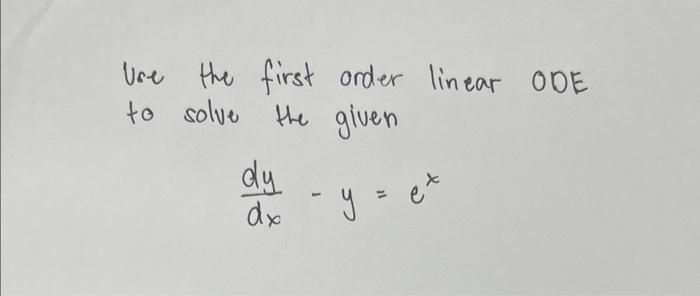 Use the first order linear ODE
to solve the given
dy/dx - y = e^x